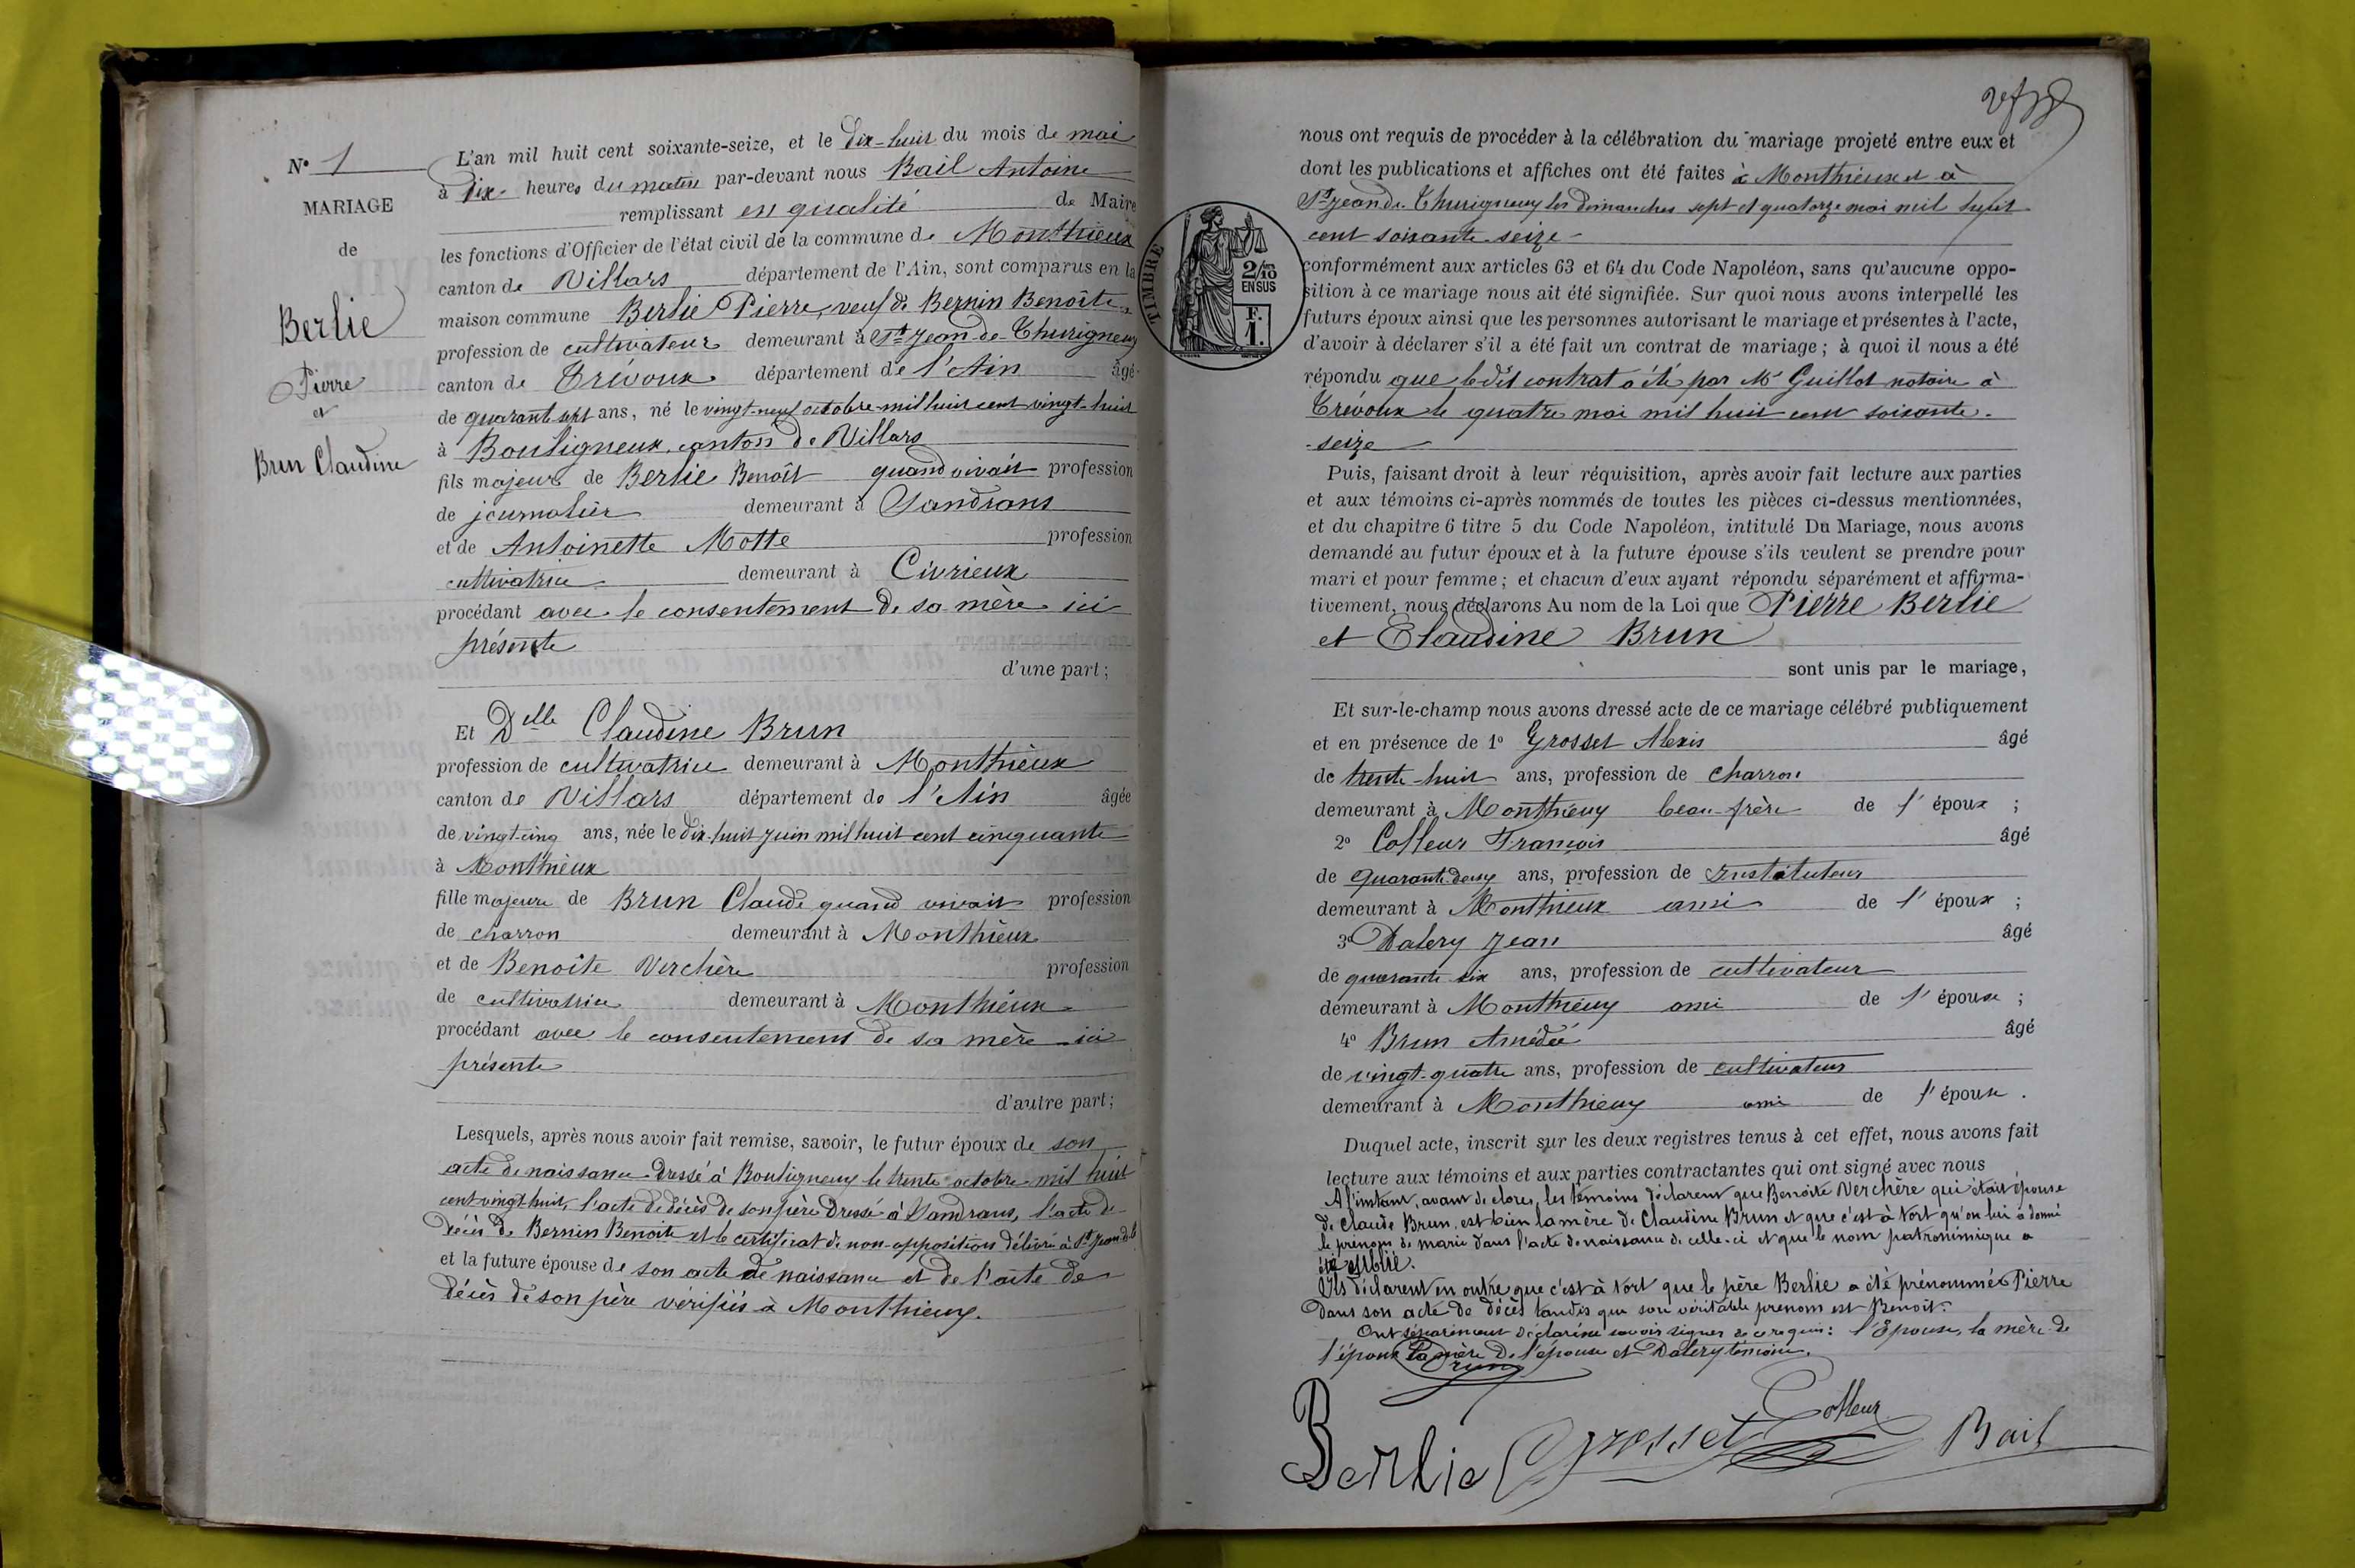 N° 1
MARIAGE
de
Berlie
Pierre
et
Brun Claudine
L'an mil huit cent soixante-seize, et le dix-huit du mois de mai
à dix heures du matin par-devant nous Bail Antoine
remplissant en qualité de Maire
les fonctions d'Officier de l'état civil de la commune de Monthieux
canton de Villars département de l'Ain, sont comparus en la
maison commune Berlie Pierre, veuf de Bernin Benoîte
profession de cultivateur demeurant à St Jean de Thurigneux
canton de Trévoux département de l'Ain âgé
de quarante sept ans, né le vingt-neuf octobre mil huit cent vingt-huit
à Bouligneux, canton de Villars
fils majeur de Berlie Benoît quand vivait profession
de journalier demeurant à Sandrans
et de Antoinette Motte profession
cultivatrice demeurant à Civrieux
procédant avec le consentement de sa mère ici
présente
d'une part;
Et Delle Claudine Brun
profession de cultivatrice demeurant à Monthieux
canton de Villars département de l'Ain âgée
de vingt-cinq ans, née le dix-huit juin mil huit cent cinquante
à Monthieux
fille majeure de Brun Claude quand vivait profession
de charron demeurant à Monthieux
et de Benoîte Verchère profession
de cultivatrice demeurant à Monthieux
procédant avec le consentement de sa mère ici
présente
d'autre part;
Lesquels, après nous avoir fait remise, savoir, le futur époux de son
acte de naissance dressé à Bouligneux le trente octobre mil huit
cent vingt huit, l'acte de décès de son père dressé à Sandrans, l'acte de
décès de Bernin Benoite et le certificat de non-opposition délivré à St Jean de
et la future épouse de son acte de naissance et de l'acte de
décès de son père vérifiés à Monthieux.
nous ont requis de procéder à la célébration du mariage projeté entre eux et
dont les publications et affiches ont été faites à Monthieux et à
St Jean de Thurigneux les dimanches sept et quatorze mai mil huit
cent soixante seize
TIMBRE
2/10 EN SUS
F. 1.
conformément aux articles 63 et 64 du Code Napoléon, sans qu'aucune oppo-
sition à ce mariage nous ait été signifiée. Sur quoi nous avons interpellé les
futurs époux ainsi que les personnes autorisant le mariage et présentes à l'acte,
d'avoir à déclarer s'il a été fait un contrat de mariage; à quoi il nous a été
répondu que le dit contrat a été par Me Guillot notaire à
Trévoux le quatre mai mil huit cent soixante-
-seize
Puis, faisant droit à leur réquisition, après avoir fait lecture aux parties
et aux témoins ci-après nommés de toutes les pièces ci-dessus mentionnées,
et du chapitre 6 titre 5 du Code Napoléon, intitulé Du Mariage, nous avons
demandé au futur époux et à la future épouse s'ils veulent se prendre pour
mari et pour femme; et chacun d'eux ayant répondu séparément et affirma-
tivement, nous déclarons Au nom de la Loi que Pierre Berlie
et Claudine Brun
sont unis par le mariage,
Et sur-le-champ nous avons dressé acte de ce mariage célébré publiquement
et en présence de 1° Grosset Alexis âgé
de trente-huit ans, profession de charron
demeurant à Monthieux beau-frère de l'époux ;
2° Colleur François âgé
de quarante-deux ans, profession de instituteur
demeurant à Monthieux ami de l'époux ;
3° Dalery Jean âgé
de quarante six ans, profession de cultivateur
demeurant à Monthieux ami de l'épouse ;
4° Brun Amédée âgé
de vingt-quatre ans, profession de cultivateur
demeurant à Monthieux ami de l'épouse .
Duquel acte, inscrit sur les deux registres tenus à cet effet, nous avons fait
lecture aux témoins et aux parties contractantes qui ont signé avec nous
A l'instant, avant de clore, les témoins déclarent que Benoîte Verchère qui était épouse
de Claude Brun, est bien la mère de Claudine Brun et que c'est à tort qu'on lui a donné
le prénom de marie dans l'acte de naissance de celle-ci et que le nom patronimique a
été oublié.
Ils déclarent en outre que c'est à tort que le père Berlie a été prénommé Pierre
dans son acte de décès tandis que son véritable prénom est Benoît.
Ont séparément déclaré ne savoir signer de ce requis: l'épouse, la mère de
l'époux la mère de l'épouse et Dalery témoin.
Brun
Colleur
Berlie Grosset Bail